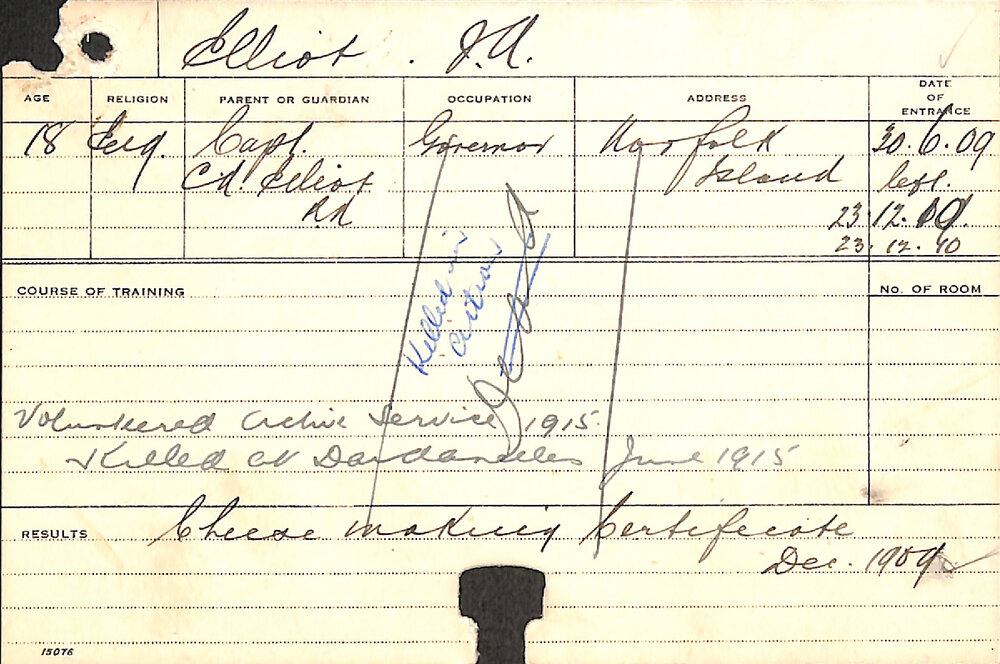 Elliot. J.A.
AGE RELIGION PARENT OR GUARDIAN OCCUPATION ADDRESS DATE OF ENTRANCE
18 Eng. Capt. Governor Norfolk 30.6.09
C.A. Elliot Island left.
R.N 23.12.09.
23.12.10
Killed in
Action
COURSE OF TRAINING No. OF ROOM
Volunteered Active Service 1915.
Killed at Dardanelles June 1915
RESULTS Cheese making Certificate
Dec. 1909
15076